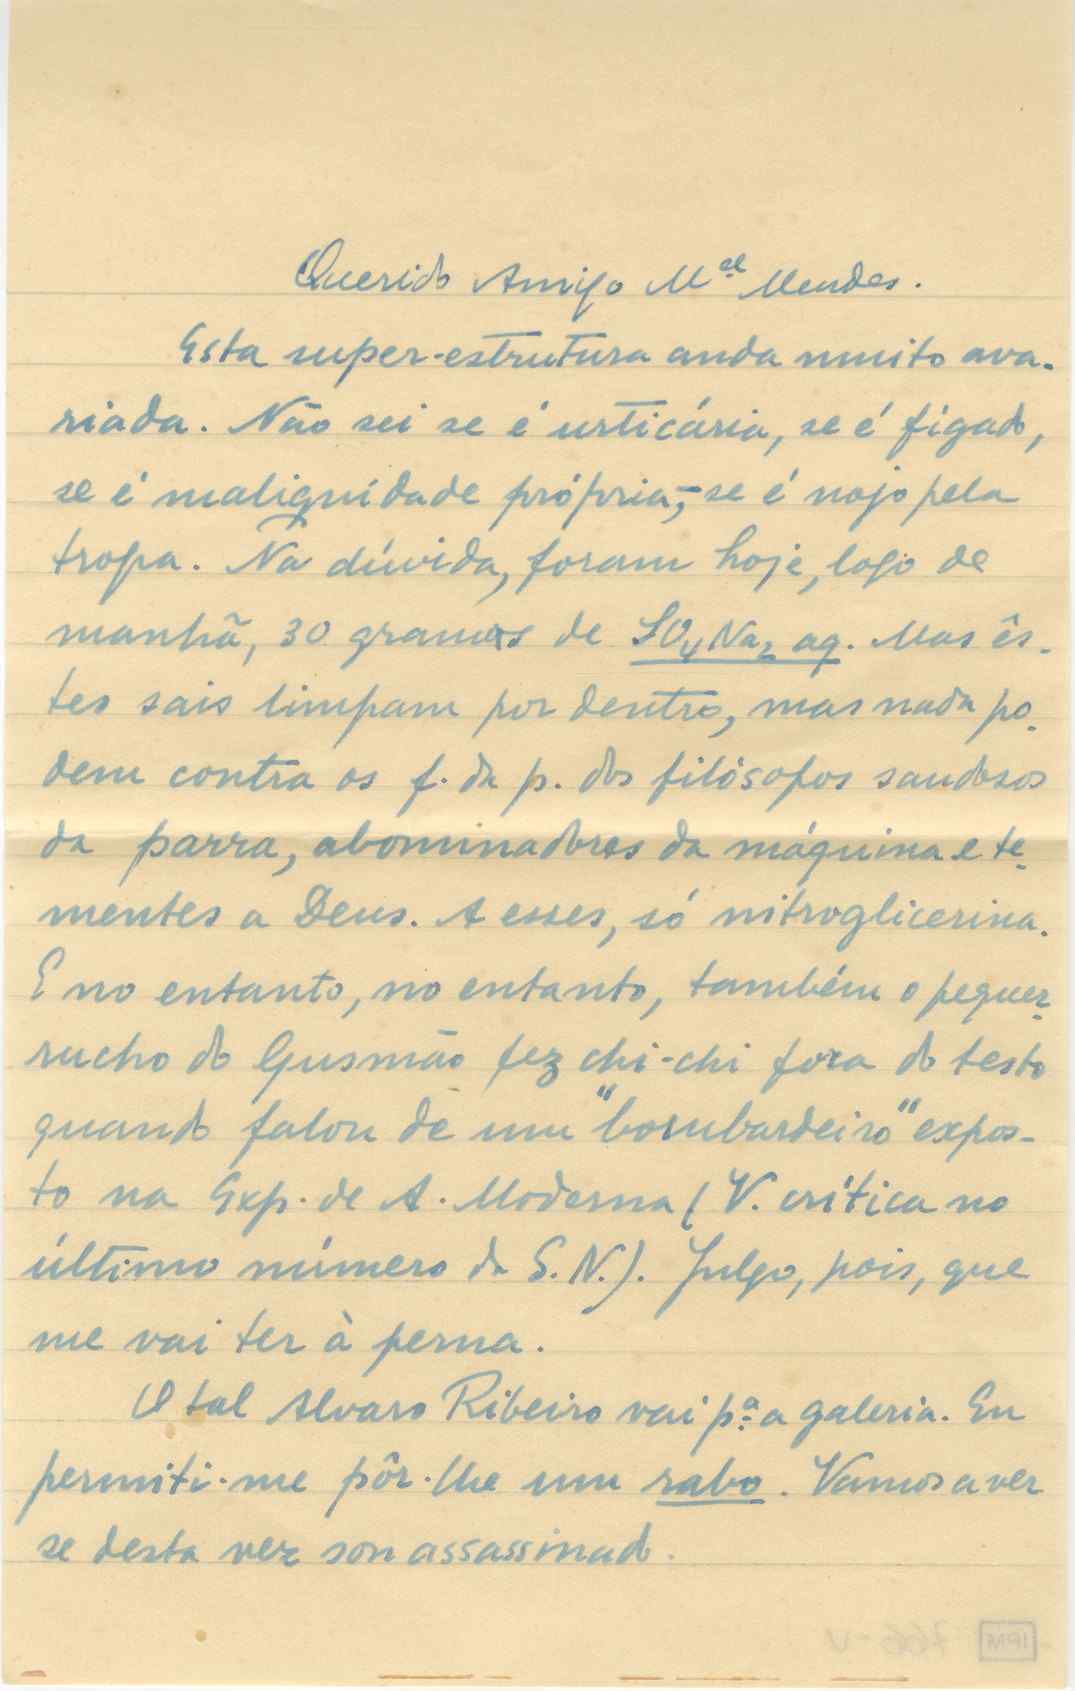 Querido Amigo M.el Mendes.
Esta super-estrutura anda muito ava-
riada. Não sei se é urticária, se é fígado,
se é malignidade própria, se é nojo pela
tropa. Na dúvida, foram hoje, logo de
manhã, 30 gramas de SO4Na2 aq. Mas ês-
tes sais limpam por dentro, mas nada po-
dem contra os f. da p. dos filósofos saudosos
da parra, abominadores da máquina e te-
mentes a Deus. A esses, só nitroglicerina.
E no entanto, no entanto, também o pequer-
rucho do Gusmão fez chi-chi fora do testo
quando falou de um "bombardeiro" expos-
to na Exp. de A. Moderna (V. crítica no
último número da S.N.). Julgo, pois, que
me vai ter à perna.
O tal Alvaro Ribeiro vai p.ª a galeria. Eu
permiti-me pôr-lhe um rabo. Vamos a ver
se desta vez sou assassinado.
IPM 766-V